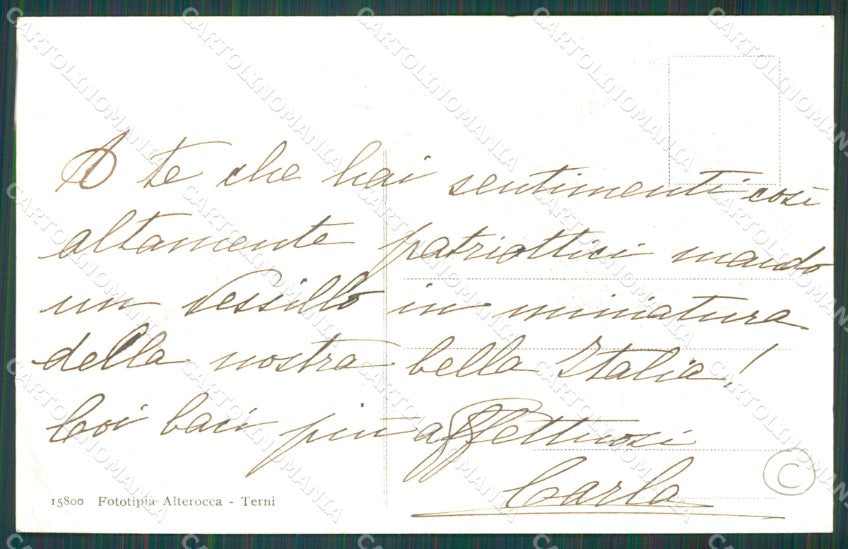 A te che hai sentimenti così
altamente patriottici mando
un vessillo in miniatura
della nostra bella Italia!
Coi baci più affettuosi
Carla
C
15800 Fototipia Alterocca - Terni
CARTOLINOMANIA